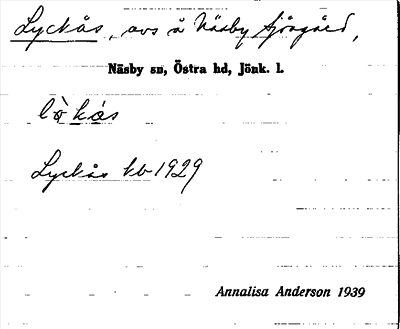 Lyckås, avs å Näsby Sjögård,
Näsby sn, Östra hd, Jönk. l.
lỳkås
Lyckås kb 1929
Annalisa Anderson 1939